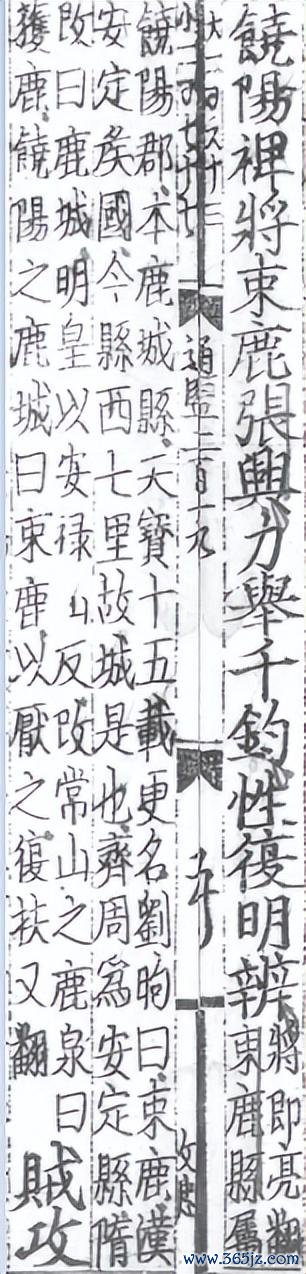 饒陽裨將束鹿張興力舉千鈞性復明辨
將即亮翻
束鹿縣屬
大一百六十三
小一百七十七
通鑑二百十九
饒陽郡本鹿城縣天寶十五載更名劉昫曰束鹿漢
安定侯國今縣西七里故城是也齊周為安定縣隋
改曰鹿城明皇以安祿山反改常山之鹿泉曰
獲鹿饒陽之鹿城曰束鹿以厭之復扶又翻
賊攻
www.365jz.com